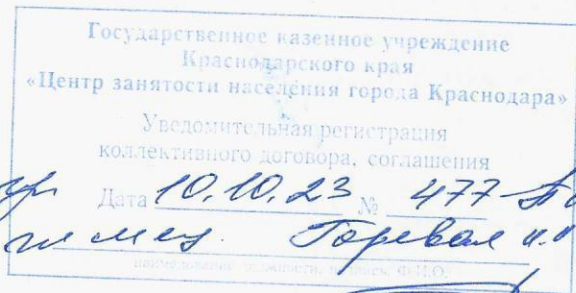 Государственное казенное учреждение
Краснодарского края
«Центр занятости населения города Краснодара»
Уведомительная регистрация
коллективного договора, соглашения
Дата 10.10.23 № 477-
наименование должности, подпись, Ф.И.О.